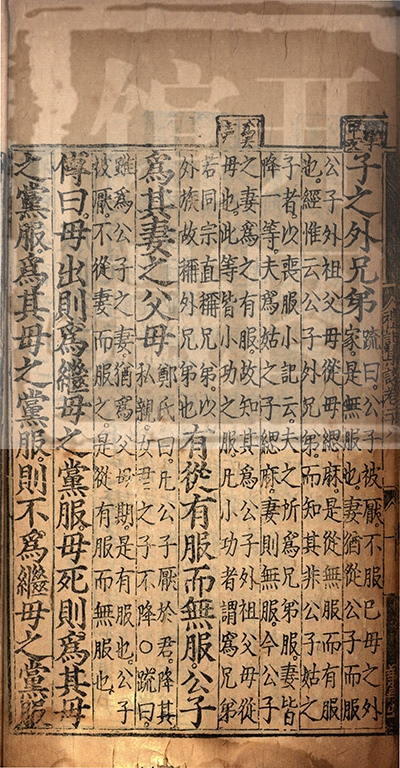 子之外兄弟疏曰公子被厭不服已母之外
家是無服也妻猶從公子而服
公子外祖父母從母緦麻是從無服而有服
也經惟云公子外兄弟而知其非公子姑之
子者以喪服小記云夫之所爲兄弟服妻皆
降一等夫爲姑之子緦麻妻則無服今公子
之妻爲之有服故知其爲公子外祖父母從
母也此等皆小功之服凡小功者謂爲兄弟
若同宗直稱兄弟以
外族故稱外兄弟
有從有服而無服公子
爲其妻之父母鄭氏曰凡公子厭於君降其
私親女君之子不降○疏曰
雖爲公子之妻猶爲父母期是有服也公子
被厭不從妻而服之是從有服而無服也
傳曰母出則爲繼母之黨服母死則爲其母
之黨服爲其母之黨服則不爲繼母之黨服